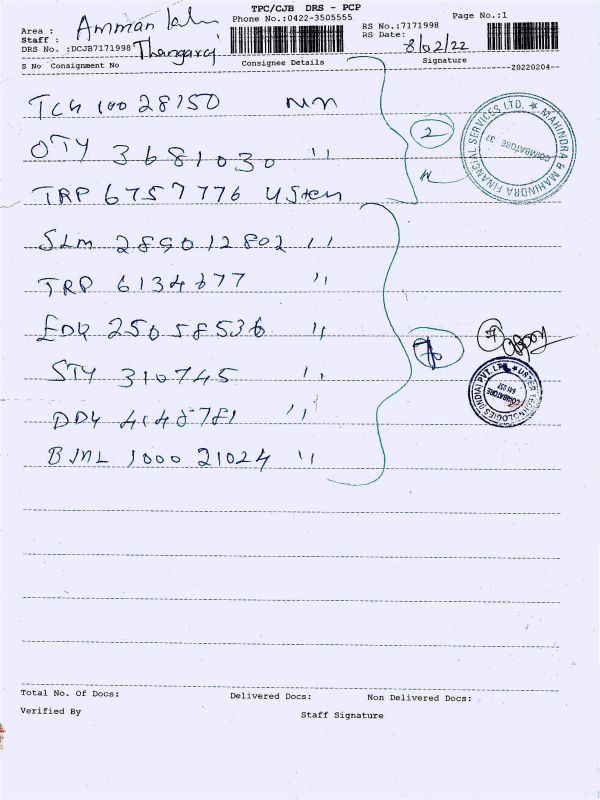 TPC/CJB DRS - PCP
Area : Amman
Phone No.:0422-3505555
Page No.:1
Staff : Thangaraj
RS No.:7171998
RS Date: 8/02/22
DRS No. :DCJB7171998
S No Consignment No Consignee Details Signature
20220204
TCG 100 28150 MM
OTY 3681030 "
2
TRP 6757776 Uster
SLM 289012802 "
TRP 6134677 "
EDQ 25058536 "
7
STY 310745 "
DDY 4148781 "
BJNL 1000 21024 "
MAHINDRA & MAHINDRA FINANCIAL SERVICES LTD. ★
COIMBATORE - 37
USTER TECHNOLOGIES (INDIA) PVT. LTD. ★
COIMBATORE
641 037
Total No. Of Docs: Delivered Docs: Non Delivered Docs:
Verified By Staff Signature